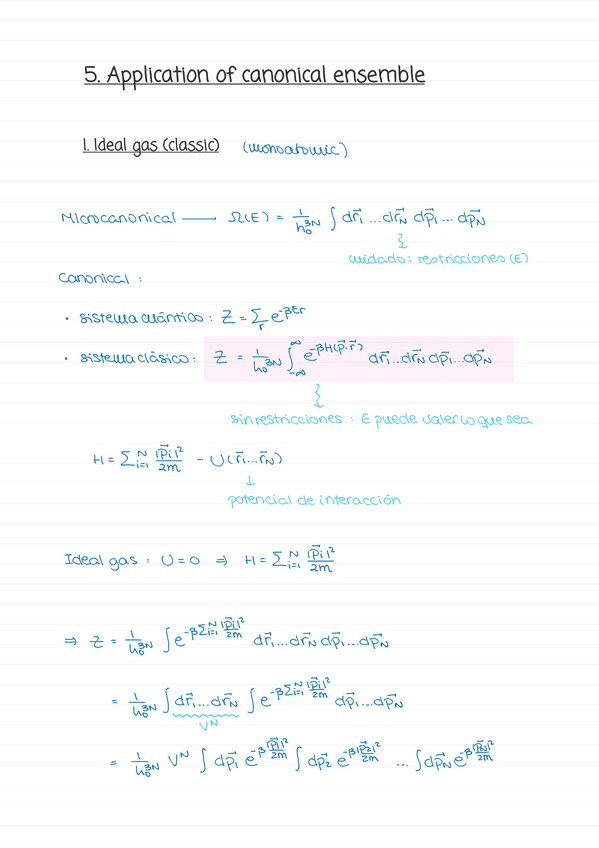 5. Application of canonical ensemble
1. Ideal gas (classic) (monoatomic)
Microcanonical —— Ω(E) = 1/h₀^3N ∫ dr⃗₁ ... dr⃗_N dp⃗₁ ... dp⃗_N
cuidado: restricciones (E)
Canonical :
· sistema cuántico : Z = Σ_r e^-βEr
· sistema clásico : Z = 1/h₀^3N ∫_-∞^∞ e^-βH(p⃗,r⃗) dr⃗₁...dr⃗_N dp⃗₁...dp⃗_N
sin restricciones : E puede valer lo que sea
H = Σ_i=1^N |p⃗i|²/2m - U(r⃗₁...r⃗_N)
↓
potencial de interacción
Ideal gas : U = 0 ⇒ H = Σ_i=1^N |p⃗i|²/2m
⇒ Z = 1/h₀^3N ∫ e^-βΣ_i=1^N |p⃗i|²/2m dr⃗₁...dr⃗_N dp⃗₁...dp⃗_N
= 1/h₀^3N ∫ dr⃗₁...dr⃗_N ∫ e^-βΣ_i=1^N |p⃗i|²/2m dp⃗₁...dp⃗_N
V^N
= 1/h₀^3N V^N ∫ dp⃗₁ e^-β|p⃗₁|²/2m ∫ dp⃗₂ e^-β|p⃗₂|²/2m ... ∫ dp⃗_N e^-β|p⃗_N|²/2m